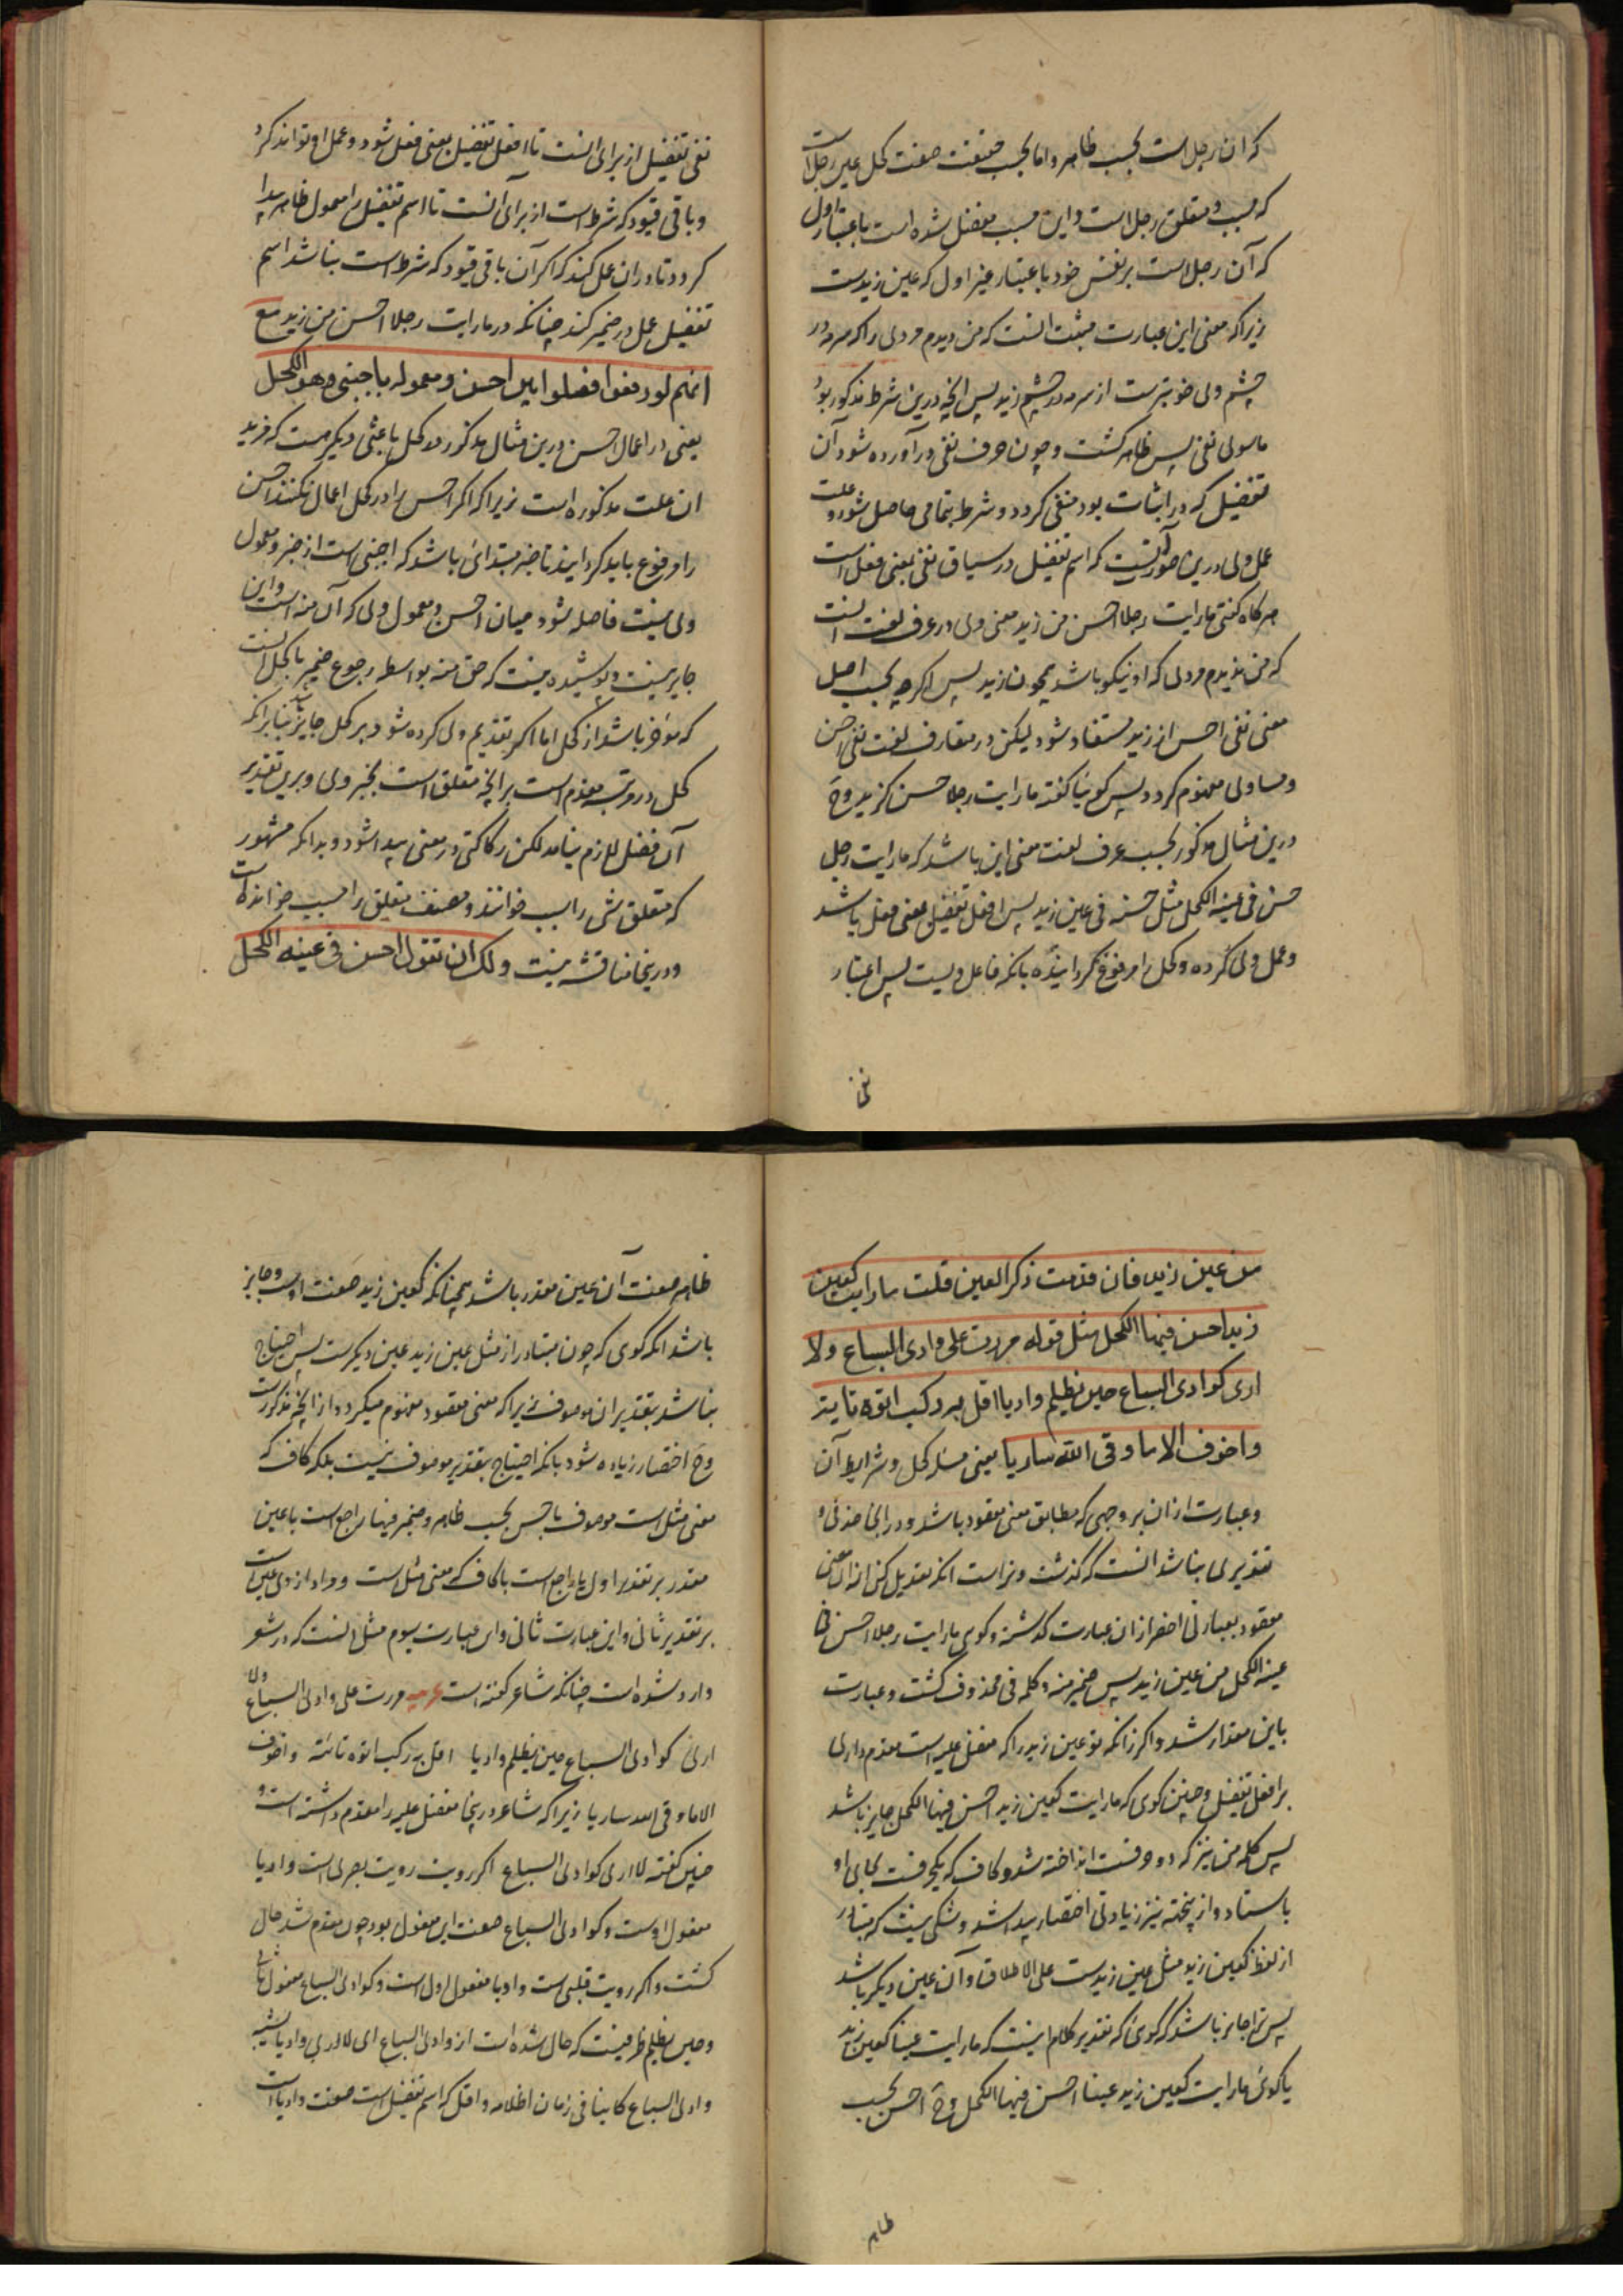 که آن رجل است بحسب ظاهر و اما بحسب حقیقت صفت کحل عین رجل است
که مسبب و متعلق رجل است و این مسبب مفضل شده است باعتبار اول
که آن رجل است بر نفس خود باعتبار غیر اول که عین زیدست
زیراکه معنی این عبارت مثبت انست که من دیدم مردی را که سرمه در
چشم وی خوبترست از سرمه در چشم زید پس انچه درین شرط مذکور بود
ماسوای نفی پس ظاهر کشت و چون حرف نفی در آورده شود آن
تفضیل که در اثبات بود منفی کردد و شرط بتمامی حاصل شود و علت
عمل وی درین صورت آنست که اسم تفضیل در سیاق نفی بمعنی فعل است
هرکاه کفتی ما رایت رجلا احسن من زید معنی وی در عرف لغت انست
که من ندیدم مردی که او نیکو باشد همچون زید پس اکرچه بحسب اصل
معنی نفی احسن از زید مستفاد شود لیکن در متعارف لغت نفی احسن
و مساوی مفهوم کردد پس کوئیا کفته ما رایت رجلا حسن کزید وح
درین مثال مذکور بحسب عرف لغت معنی این باشد که ما رایت رجل
حسن فی عینه الکحل مثل حسنه فی عین زید پس افعل تفضیل بمعنی فعل باشد
و عمل وی کرده و کحل را مرفوع کردانیده بانکه فاعل ویست پس اعتبار
نفی
نفی تفضیل از برای انست تا افعل تفضیل بمعنی فعل شود و عمل او تواند کرد
و باقی قیود که شرط است از برای آنست تا اسم تفضیل را معمول ظاهر پیدا
کردد تا در ان عمل کند که اکر آن باقی قیود که شرط است نباشد اسم
تفضیل عمل در ضمیر کند چنانکه در ما رایت رجلا احسن من زید مع
انهم لو رفعوا فصلوا بین احسن و معموله باجنبی وهو الکحل
یعنی در اعمال احسن درین مثال مذکور در کحل باعثی دیکر هست که مزید
ان علت مذکوره است زیراکه اکر احسن را در کحل اعمال نکنند احسن
را مرفوع باید کردانید تا خبر مبتدائی باشد که اجنبی است از خبر و معمول
ولی نیست فاصله شود میان احسن و معمول ولی که آن منه است و این
جایز نیست و پوشیده نیست که حق منه بواسطه رجوع ضمیر با کحل انست
که مؤخر باشد از کحل اما اکر تقدیم ولی کرده شود بر کحل جایز باشد بنابرانکه
کحل در مرتبه مقدم است بر انچه متعلق است بخبر ولی و برین تقدیر
آن فصل لازم نیامد لکن رکاکتی در معنی پیدا شود و بدانکه مشهور
که متعلق شی را سبب خوانند و مصنف متعلق را مسبب خوانده است
و درینجا مناقشه نیست ولک ان تقول احسن فی عینه الکحل
من عین زید فان قدمت ذکر العین قلت ما رایت کعین
زید احسن فیها الکحل مثل قوله مررت علی وادی السباع ولا
اری کوادی السباع حین یظلم وادیا اقل به رکب اتوه تایة
واخوف الا ما وقی الله ساریا یعنی مسئله کحل و شرایط آن
و عبارت از ان بر وجهی که مطابق معنی مقصود باشد و در انجا حذفی و
تقدیری نباشد انست که کذشت و تراست انکه تعدیل کنی از ان معنی
مقصود بعبارتی اخصر از ان عبارت کذشته و کوی ما رایت رجلا احسن فی
عینه الکحل من عین زید پس ضمیر منه و کلمه فی محذوف کشت و عبارت
باین مقدار شد و اکر زانکه تو عین زید را که مفضل علیه است مقدم داری
بر افعل تفضیل و چنین کوی که ما رایت کعین زید احسن فیها الکحل جایز باشد
پس کلمه من نیز که دو حرفست انداخته شد و کاف که یکحرفست بجای او
باستاد و از پنجهته نیز زیادتی اختصار پیدا شد و شکی نیست که متبادر
از لفظ کعین زید مثل عین زیدست علی الاطلاق و آن عین دیکر باشد
پس ترا جایز باشد که کوئی که تقدیر کلام اینست که ما رایت عینا کعین زید
یا کوئی ما رایت کعین زید عینا احسن فیها الکحل وح احسن بحسب
ظاهر
ظاهر صفت آن عین مقدر باشد همچنانکه کعین زید صفت اوست و جایز
باشد انکه کوی که چون متبادر از مثل عین زید عین دیکرست پس احتیاج
نباشد بتقدیر ان موصوف زیراکه معنی مقصود مفهوم میکردد از انچه مذکورست
وح اختصار زیاده شود بانکه احتیاج بتقدیر موصوف نیست بلکه کاف که
معنی مثل است موصوف باحسن بحسب ظاهر و ضمیر فیها راجع است با عین
مقدر بر تقدیر اول یا راجع است با کاف که معنی مثل است و مراد از وی عین است
بر تقدیر ثانی و این عبارت ثانی و این عبارت سیوم مثل انست که در شعر
وارد شده است چنانکه شاعر کفته است عربیه مررت علی وادی السباع ولا
اری کوادی السباع حین یظلم وادیا اقل به رکب اتوه تائة واخوف
الا ما وقی الله ساریا زیراکه شاعر درینجا مفضل علیه را مقدم داشته است و
چنین کفته لا اری کوادی السباع اکر رویت رویت بصری است وادیا
مفعول اوست و کوادی السباع صفت این مفعول بود چون مقدم شد حال
کشت و اکر رویت قلبی است وادیا مفعول اول است و کوادی السباع مفعول ثانی
و حین یظلم ظرفیست که حال شده است از وادی السباع ای لا اری وادیا یشبه
وادی السباع کاینا فی زمان اظلامه و اقل که اسم تفضیل است صفت وادیا است